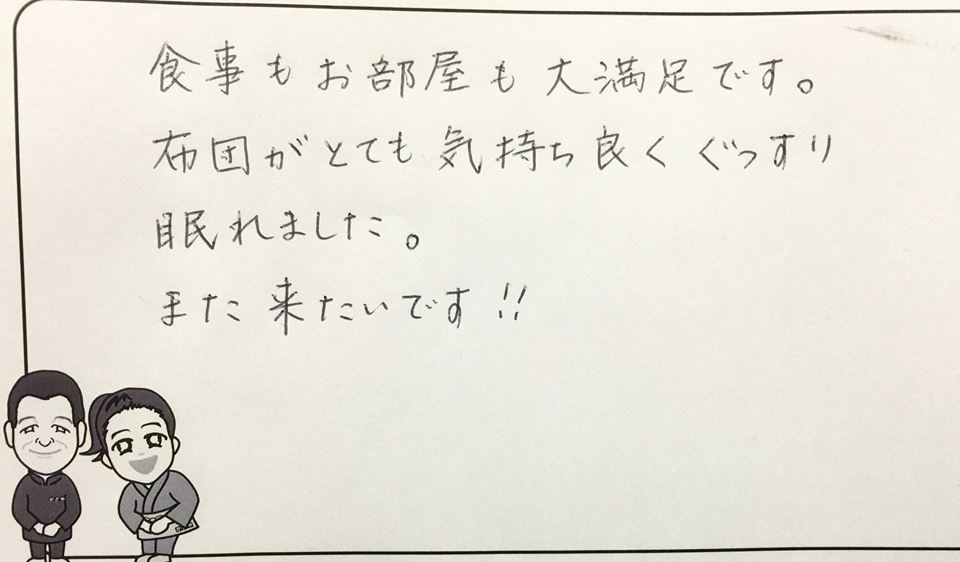 食事もお部屋も大満足です。
布団がとても気持ち良くぐっすり
眠れました。
また来たいです!!